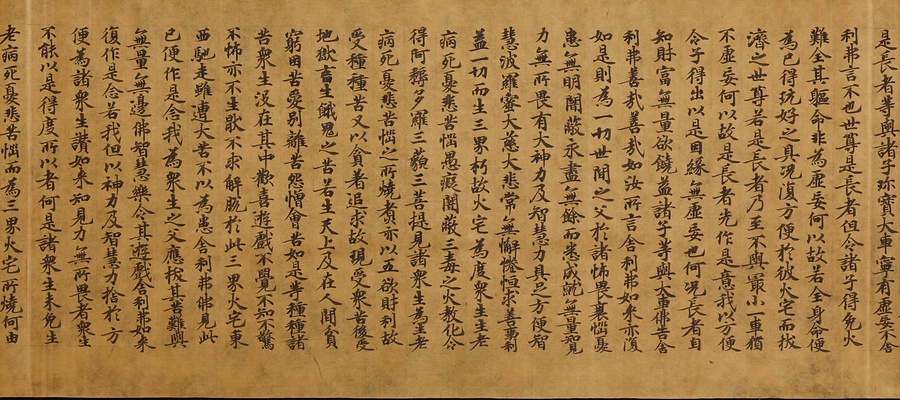 是長者等與諸子珎寶大車寧有虛妄不舍
利弗言不也世尊是長者但令諸子得免火
難全其軀命非為虛妄何以故若全身命便
為已得玩好之具況復方便於彼火宅而拔
濟之世尊若是長者乃至不與最小一車猶
不虛妄何以故是長者先作是意我以方便
令子得出以是因緣無虛妄也何況長者自
知財富無量欲饒益諸子等與大車佛告舍
利弗善哉善哉如汝所言舍利弗如來亦復
如是則為一切世間之父於諸怖畏衰惱憂
患無明闇蔽永盡無餘而悉成就無量知見
力無所畏有大神力及智慧力具足方便智
慧波羅蜜大慈大悲常無懈惓恒求善事利
益一切而生三界朽故火宅為度眾生生老
病死憂悲苦惱愚癡闇蔽三毒之火教化令
得阿耨多羅三藐三菩提見諸眾生為生老
病死憂悲苦惱之所燒煮亦以五欲財利故
受種種苦又以貪著追求故現受眾苦後受
地獄畜生餓鬼之苦若生天上及在人間貧
窮困苦愛別離苦怨憎會苦如是等種種諸
苦眾生沒在其中歡喜遊戲不覺不知不驚
不怖亦不生猒不求解脫於此三界火宅東
西馳走雖遭大苦不以為患舍利弗佛見此
已便作是念我為眾生之父應拔其苦難與
無量無邊佛智慧樂令其遊戲舍利弗如來
復作是念若我但以神力及智慧力捨於方
便為諸眾生讚如來知見力無所畏者眾生
不能以是得度所以者何是諸眾生未免生
老病死憂悲苦惱而為三界火宅所燒何由